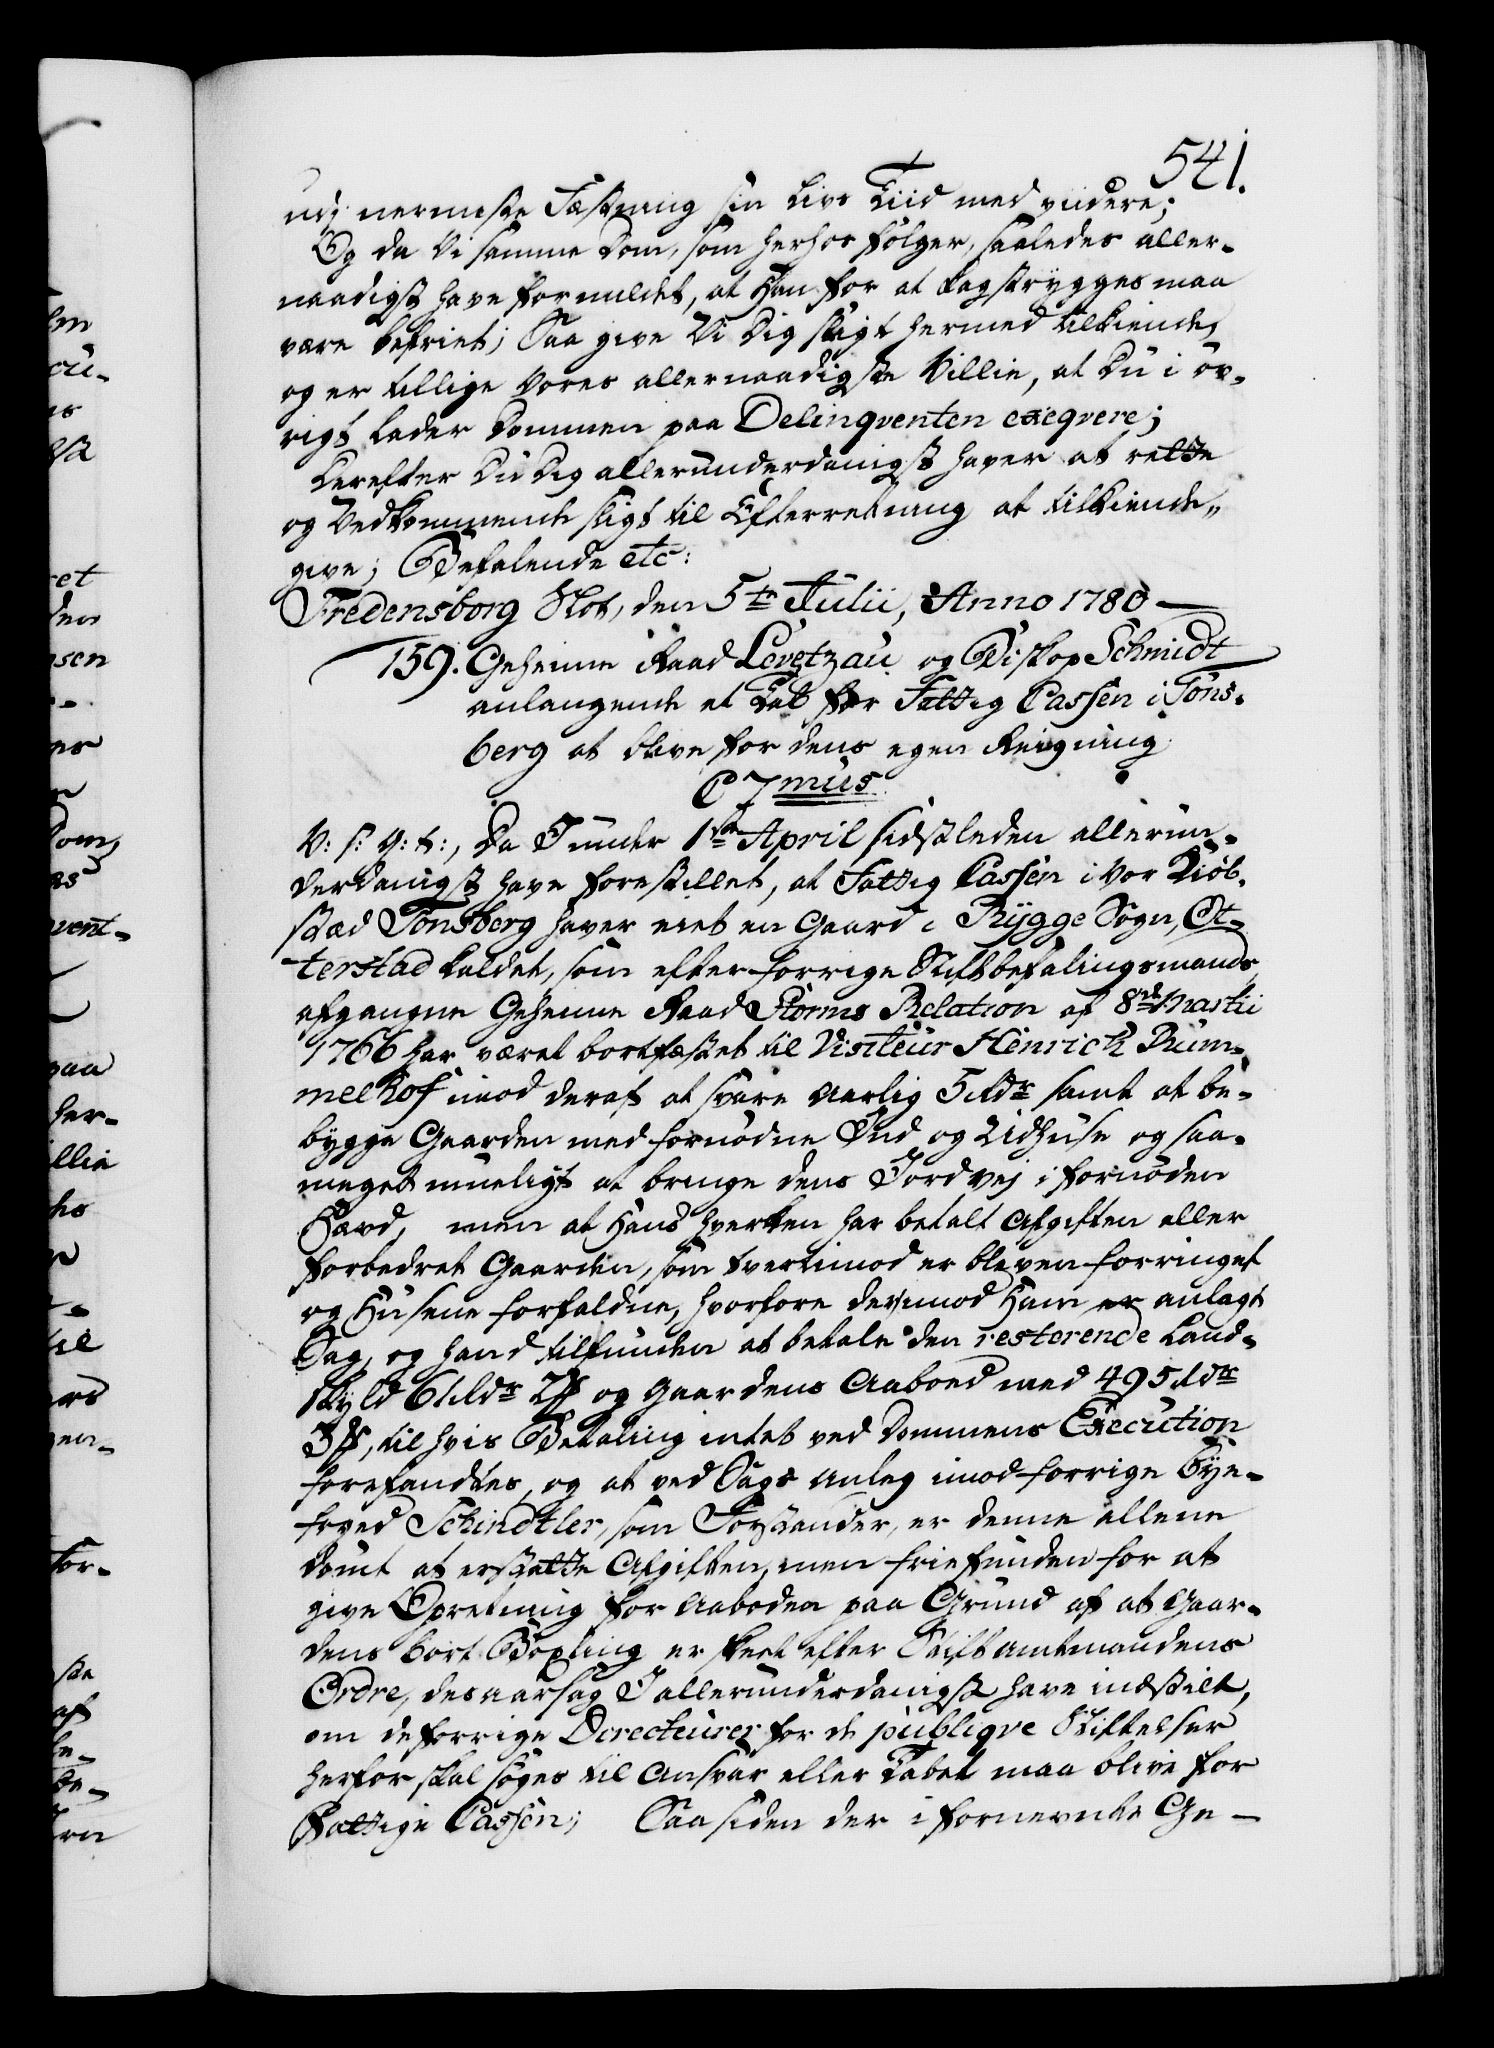 541.
udj nermeste Fæstning sin Livs Tiid med viidere;
Og da Vi samme Dom, som herhos følger, saaledes aller-
naadigst have formildet, at Han for at Kagstrygges maa
være befriet; Saa give Vi Dig sligt hermed tilkiende,
og er tillige Vores allernaadigste Villie, at Du i øv-
rigt lader Dommen paa Delinqventen exeqvere;
Derefter Du Dig allerunderdanigst haver at rette
og Vedkommende sligt til Efterretning at tilkiende-
give; Befalende etc:
Fredensborg Slot, den 5te Julii, Anno 1780 —
159. Geheime Raad Levetzau og Biskop Schmidt
anlangende et Tab for Fattig Cassen i Tøns-
berg at blive for dens egen Reigning.
C 7mus
V: s: G: t:, Da I under 1ste April sidstleden allerun-
derdanigst have forestillet, at Fattig Cassen i Vor Kiøb-
stæd Tønsberg haver eiet en Gaard i Rygge Sogn, Ot-
terstad kaldet, som efter forrige Stiftbefalingsmands
afgangne Geheime Raad Storms Relation af 8de Martii
1766 har været bortfæstet til Visiteur Henrich Rum-
melhof imod deraf at svare Aarlig 5 Rdr samt at be-
bygge Gaarden med fornødne Ind og Udhuse og saa-
meget mueligt at bringe dens Jordvej i fornøden
Hævd, men at Hand hverken har betalt Afgiften eller
forbedret Gaarden, som tvertimod er bleven forringet
og Husene forfaldne, hvorfore derimod Ham er anlagt
Sag, og hand tilfunden at betale den resterende Land-
skyld 61 Rdr 2 ß og Gaardens Aaboed med 495 Rdr
3 ß, til hvis Betaling intet ved Dommens Execution
forefandtes, og at ved Sags Anleg imod forrige Bye-
foged Schindtler, som Forstander, er denne allene
dømt at erstatte Afgiften, men friefunden for at
give Opretning for Aaboden paa Grund af at Gaar-
dens bort Bøxling er skeet efter Stiftamtmandens
Ordre, desaarsag I allerunderdanigst have indstilt,
om de forrige Directeurer for de publiqve Stiftelser
herfor skal søges til Ansvar eller Tabet maa blive for
Fattige Cassen; Saa siden der i fornevnte Ge-